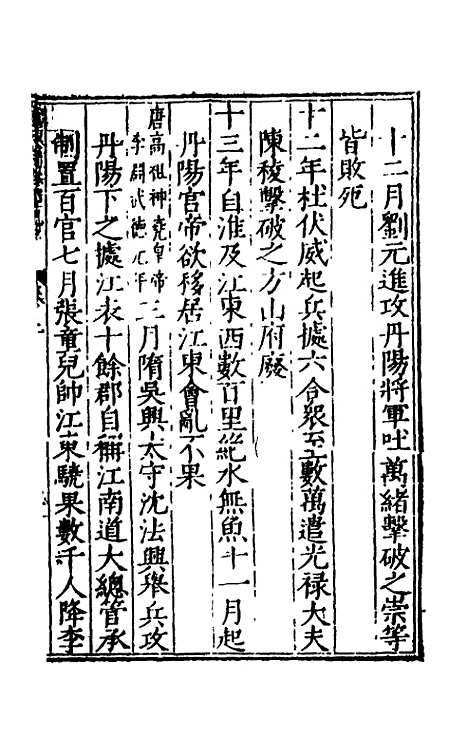 十二月劉元進攻丹陽將軍吐萬緒擊破之崇等
皆敗死
十二年杜伏威起兵據六合衆至數萬遣光禄大夫
陳稜擊破之方山府廢
十三年自淮及江東西數百里絶水無魚十一月起
丹陽官帝欲移居江東會亂不果
唐高祖神堯皇帝
李淵武德元年三月隋吳興太守沈法興舉兵攻
丹陽下之據江表十餘郡自稱江南道大總管承
制置百官七月張童兒帥江東驍果數千人降李